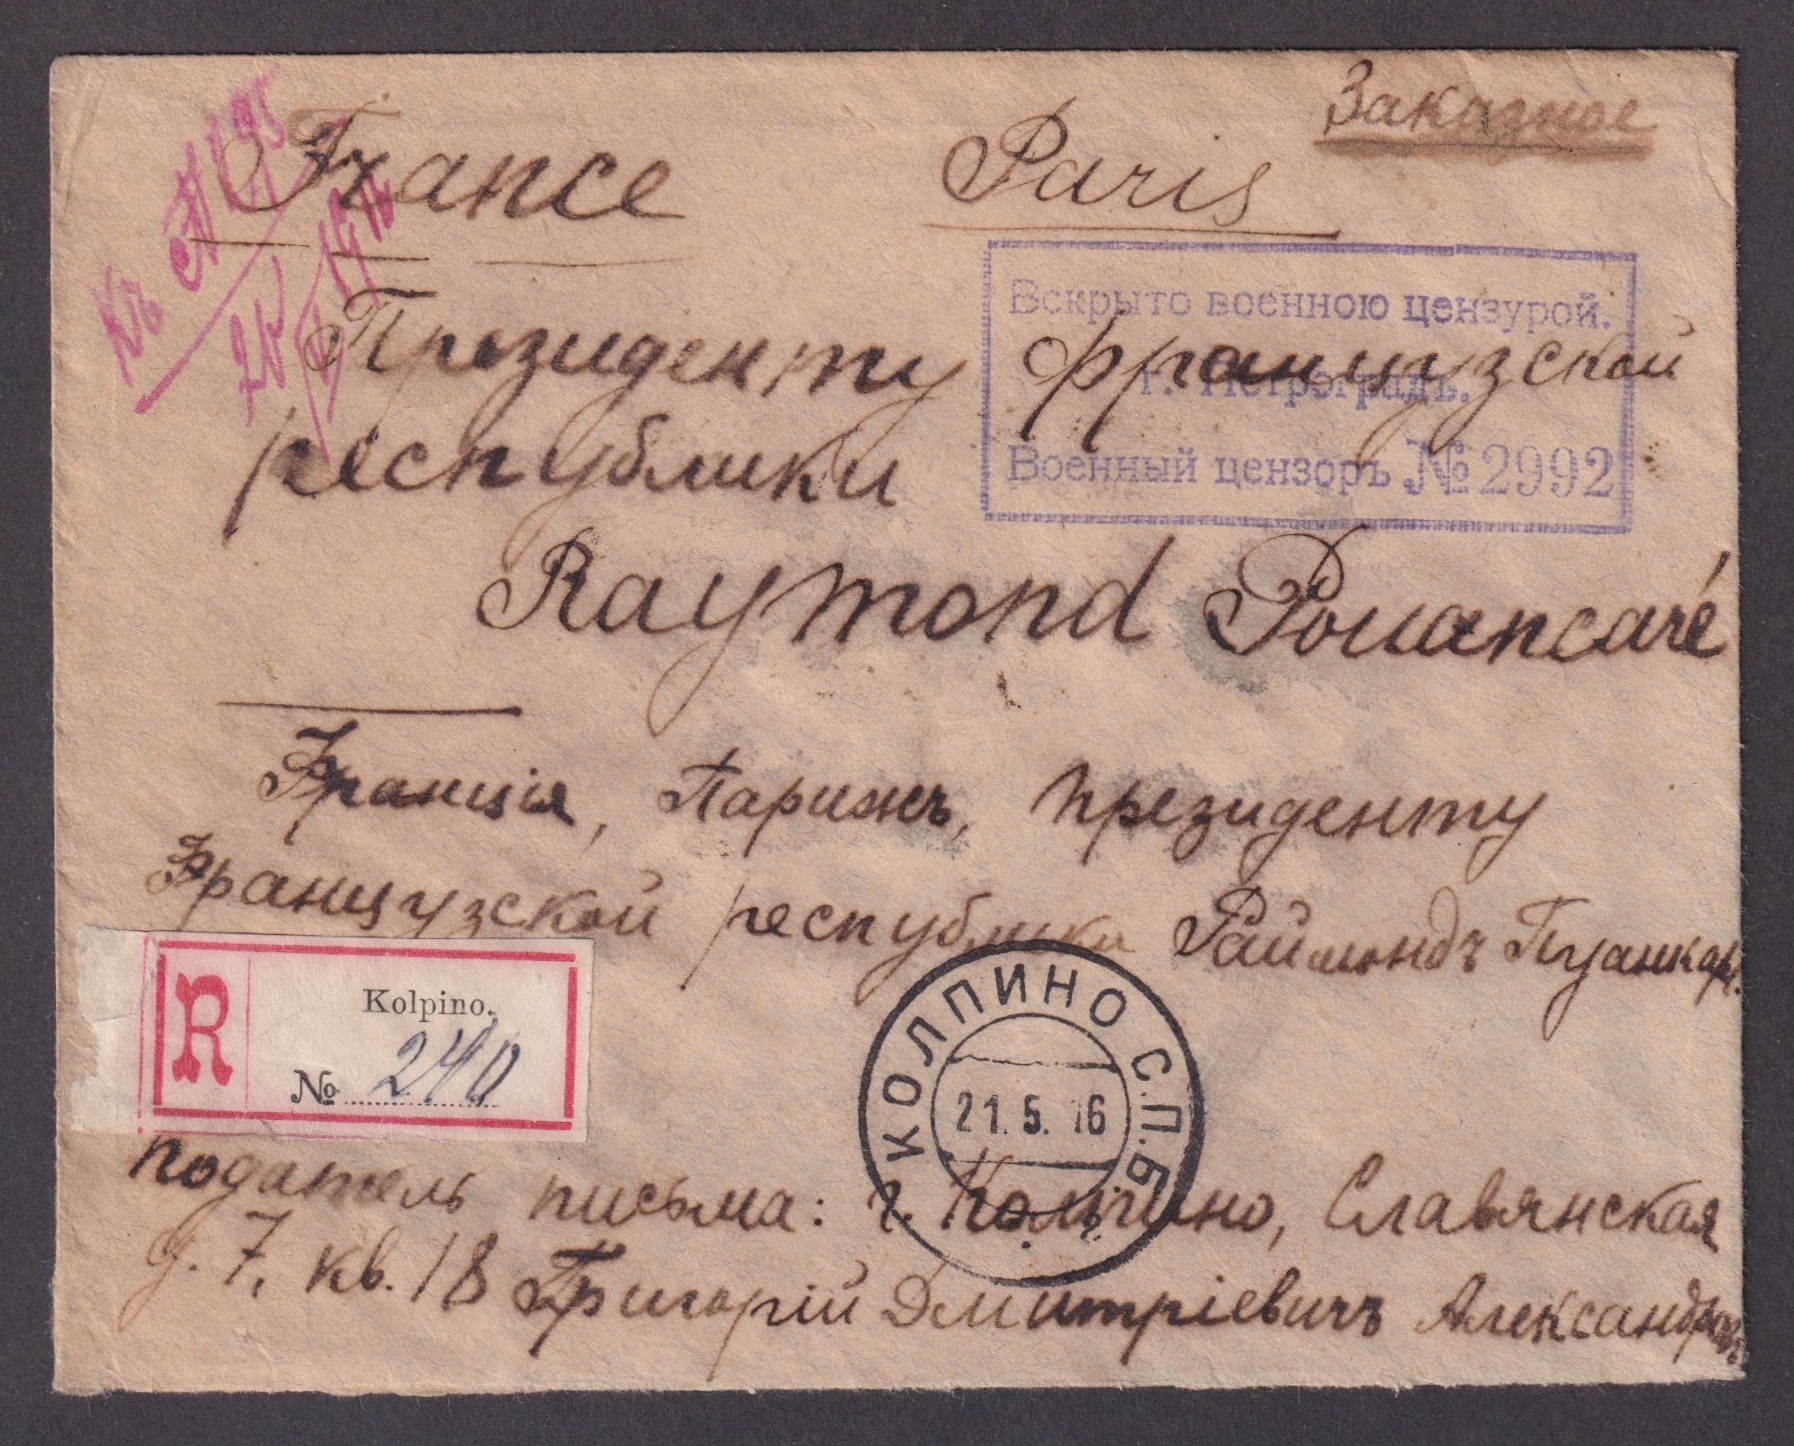 Заказное
France Paris
Къ № 1
Вскрыто военною цензурой.
г. Петроградъ.
Военный цензоръ № 2992
Президенту французской
республики
Raymond Pouancaré
Франція, Парижъ, президенту
Французской республики Раймондъ Пуанкаре.
R
Kolpino.
№ 240
КОЛПИНО С.П.Б.
21.5.16
податель письма: г. Колпино, Славянская
д. 7, кв. 18 Григорій Дмитріевичъ Александровъ